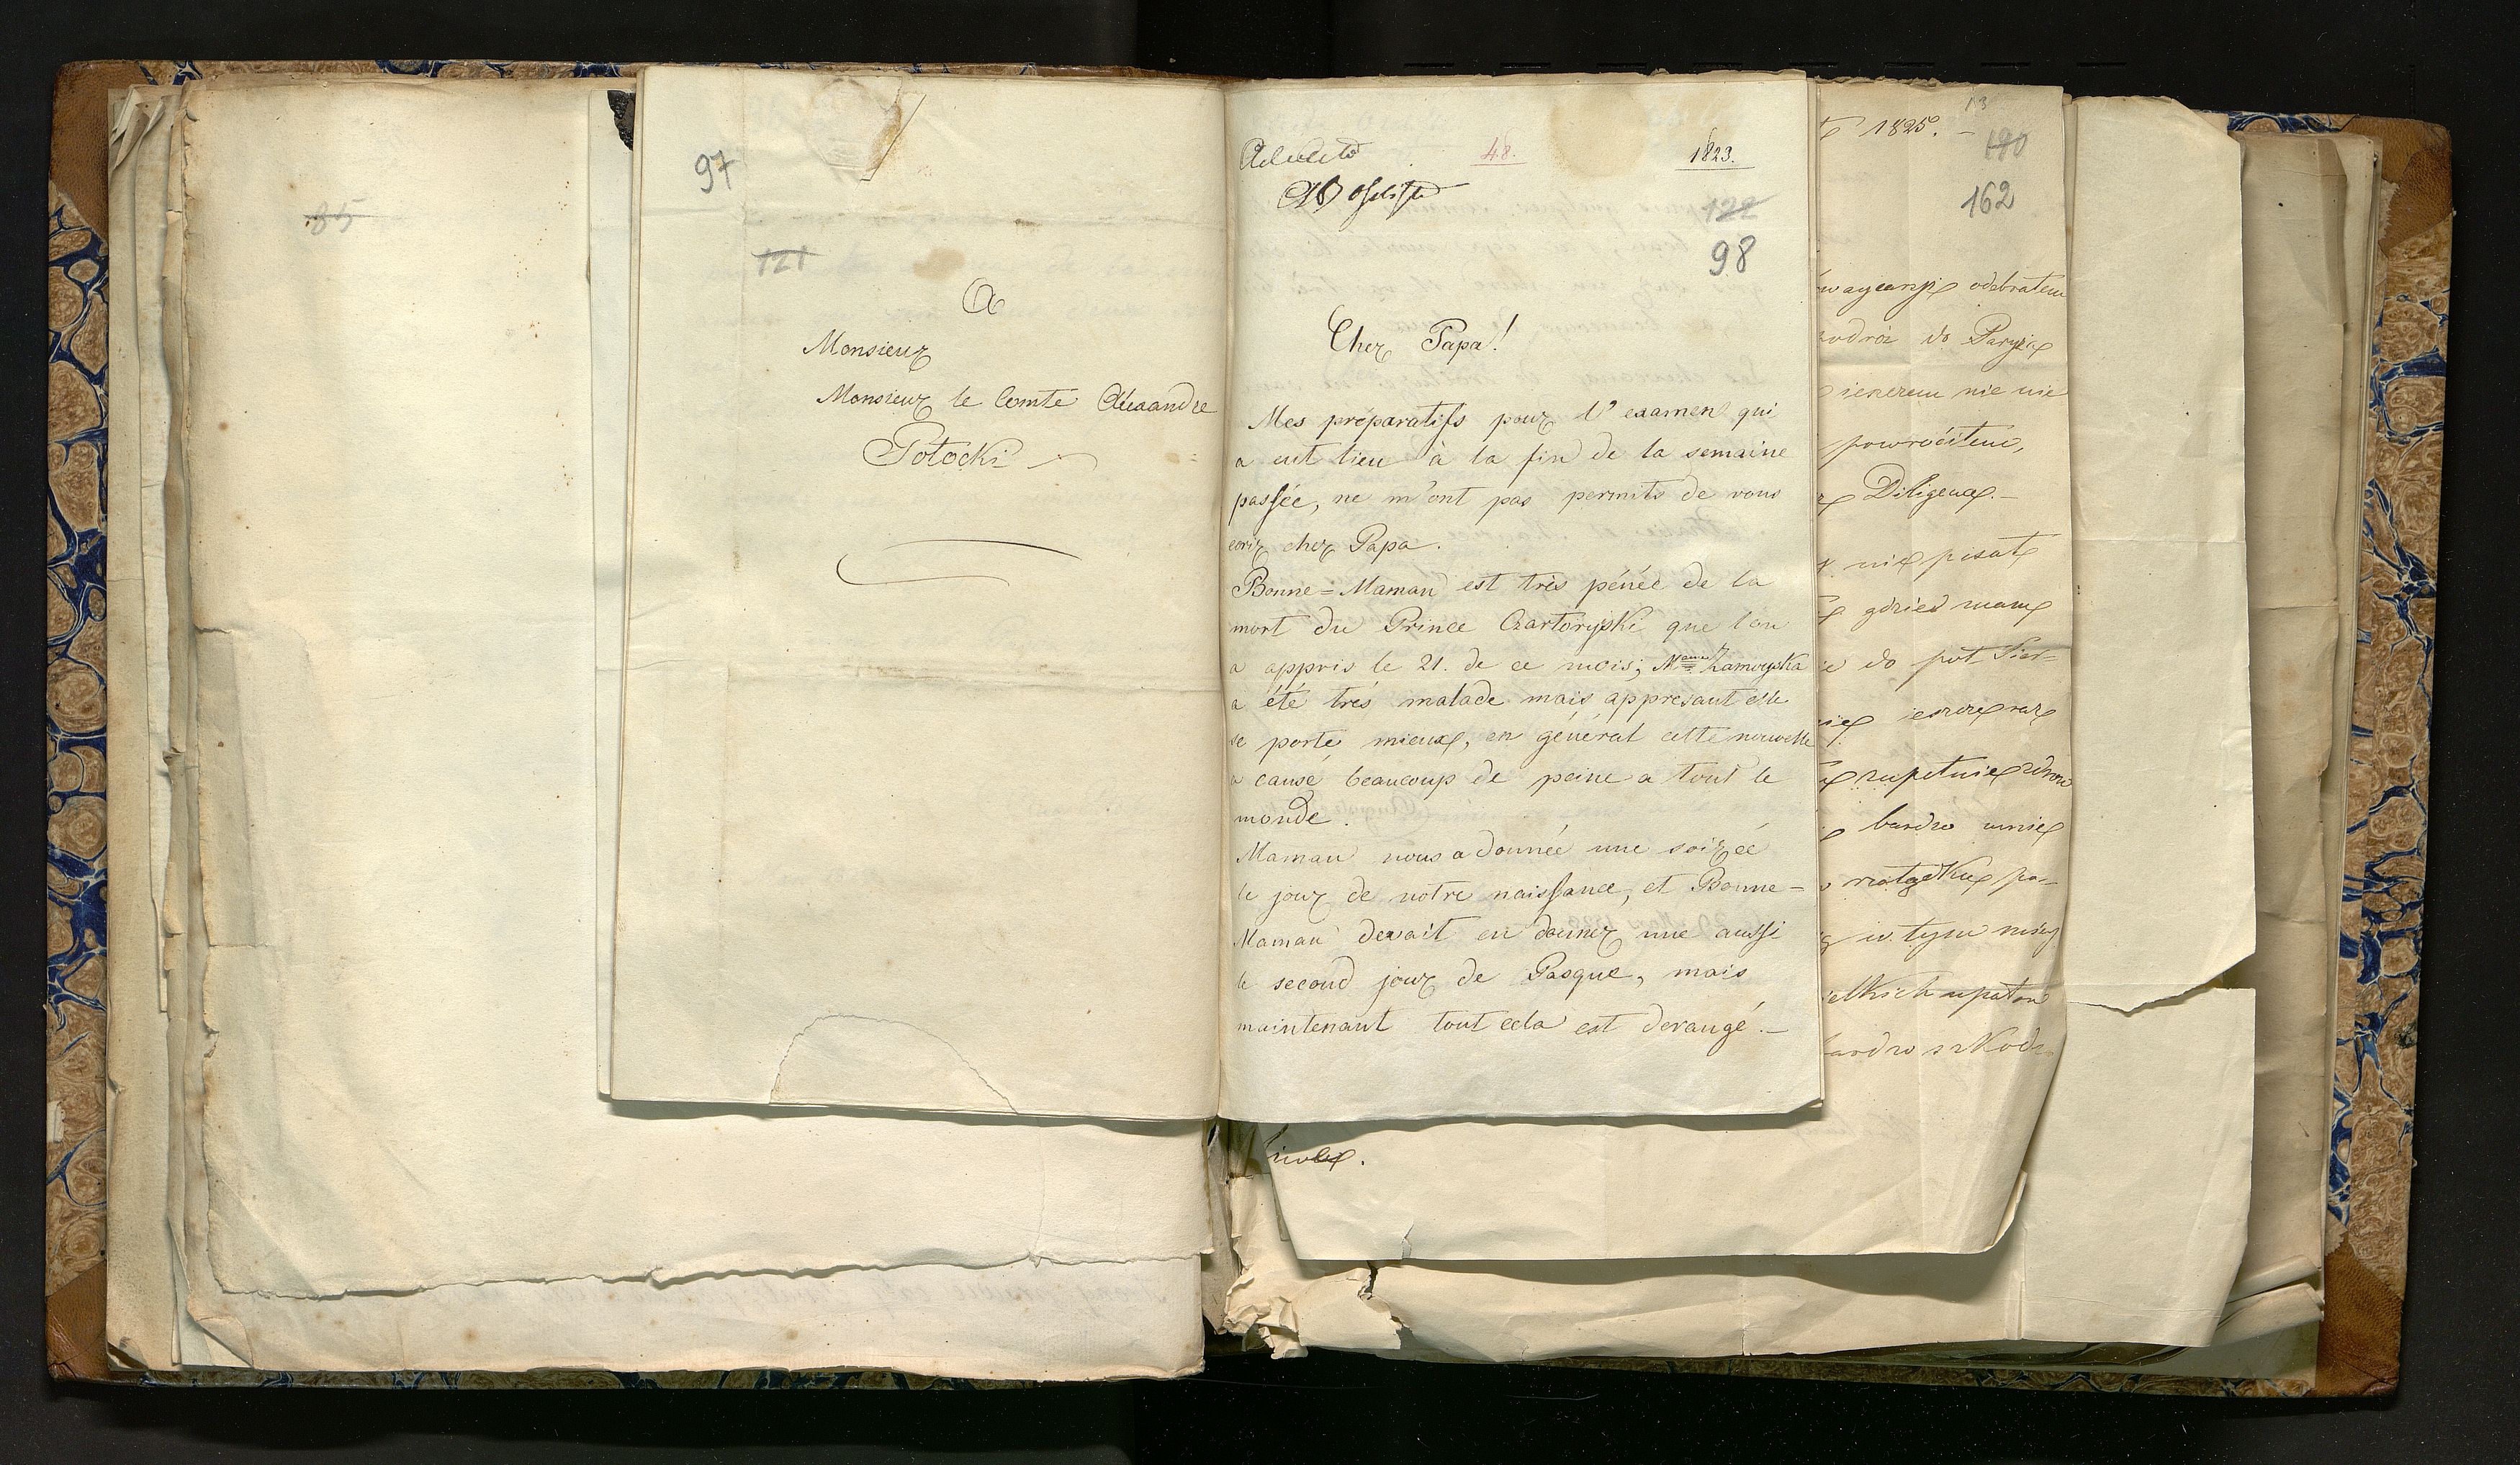 85
97
121
A
Monsieur
Monsieur le Comte Alexandre
Potocki
48.
1823.
122
98
Cher Papa!
Mes préparatifs pour l'examen qui
a eut lieu à la fin de la semaine
passée, ne m'ont pas permits de vous
ecrir cher Papa.
Bonne=Maman est très pénée de la
mort du Prince Czartoryski que l'on
a appris le 21. de ce mois; Mme Zamoyska
a été trés malade mais appresant elle
se porte mieux, en général cette nouvelle
a causé beaucoup de peine a tout le
monde.
Maman nous a donnée une soirée
le jour de notre naissance, et Bonne-
Maman devait en donner une aussi
le second jour de Pasque, mais
maintenant tout cela est derangé.-
1825.-
13
190
162
odebrałem
do Paryża
nie nie
powróciłem,
Diligencę.-
nie pisał
gdzieś mamę
do pół Sier=
ieszcze raz
zupełnie zdrow
bardzo mnie
po-
w tym
bardzo szkod